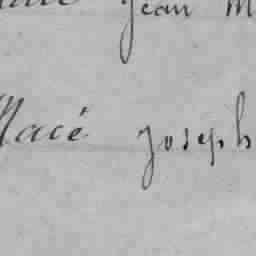 Jean M
Macé Joseph